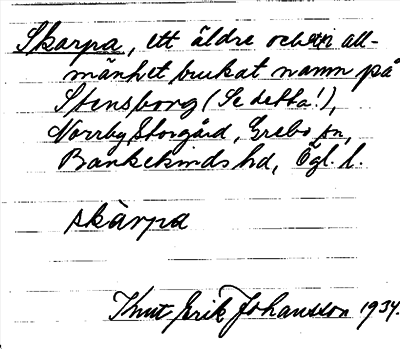 Skarpa, ett äldre och i all-
mänhet brukat namn på
Stensborg (Se detta!),
Norrby Storgård, Grebo sn,
Bankekinds hd, Ögl. l.
skàrpa
Knut Erik Johansson 1934.